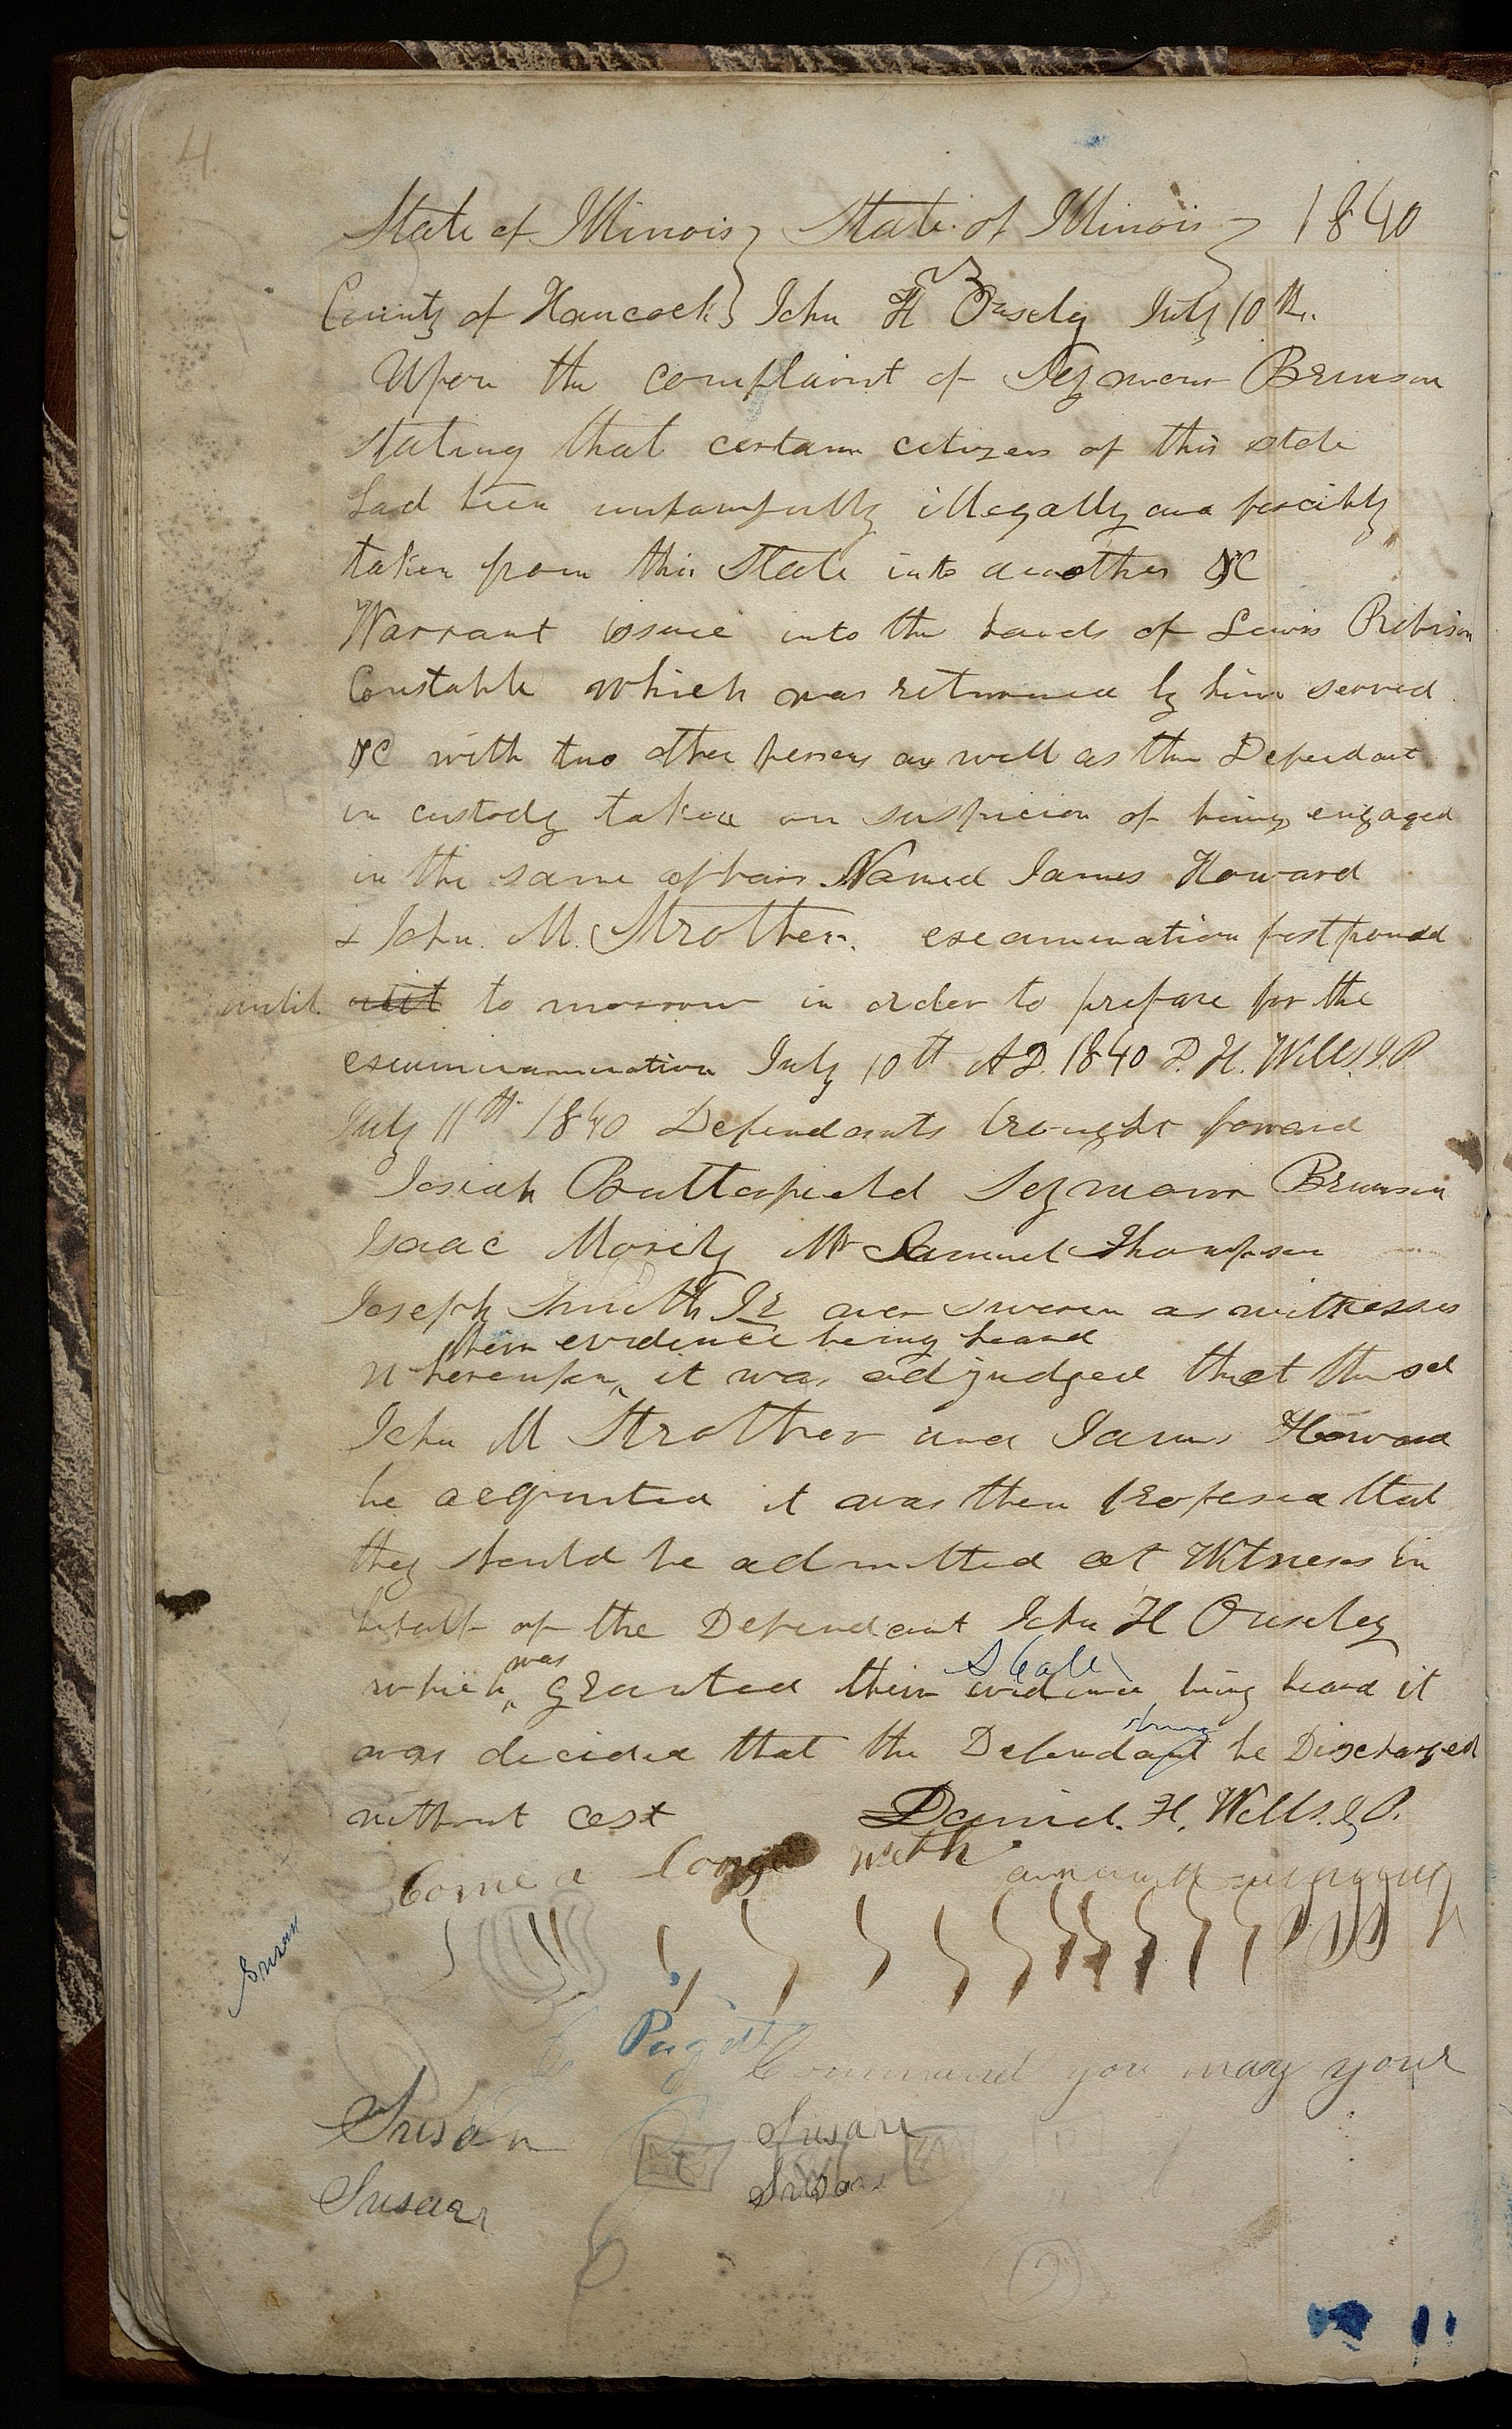 4
State of Illinois } State of Illinois } 1840
County of Hancock } vs John H Ousely July 10th.
Upon the complaint of Seymour Brunson
stating that certain citizens of this state
had been unlawfully illegally and forcibly
taken from this State into another &C
Warrant issue into the hands of Lewis Robison
Constable which was returned by him served
&C with two other persons as well as the Defendant
in custody taken on suspicion of being engaged
in the same affair Named James Howard
& John. M. Strother. examination postponed
until utit to morrow in order to prepare for the
examinamination July 10th AD. 1840 D. H. Wells J.P.
July 11th 1840 Defendants brought forward
Josiah Butterfield Seymour Brunson
Isaac Morily Mr Samuel Thompson
Joseph Smith Jr were sworn as witnesses
their evidence being heard
Whereupon it was adjudged that the sd
John M Strother and James Howard
be acquited it was then proposed that
they should be admitted as Witneses in
behalf of the Defendant John H Ouseley
was
which granted their evidence being heard it
Shall
was decided that the Defendant be Discharged
without cost Daniel. H. Wells. J.P.
Come a long with
Susan
Command you may your
Susan Susan
Susan Susan